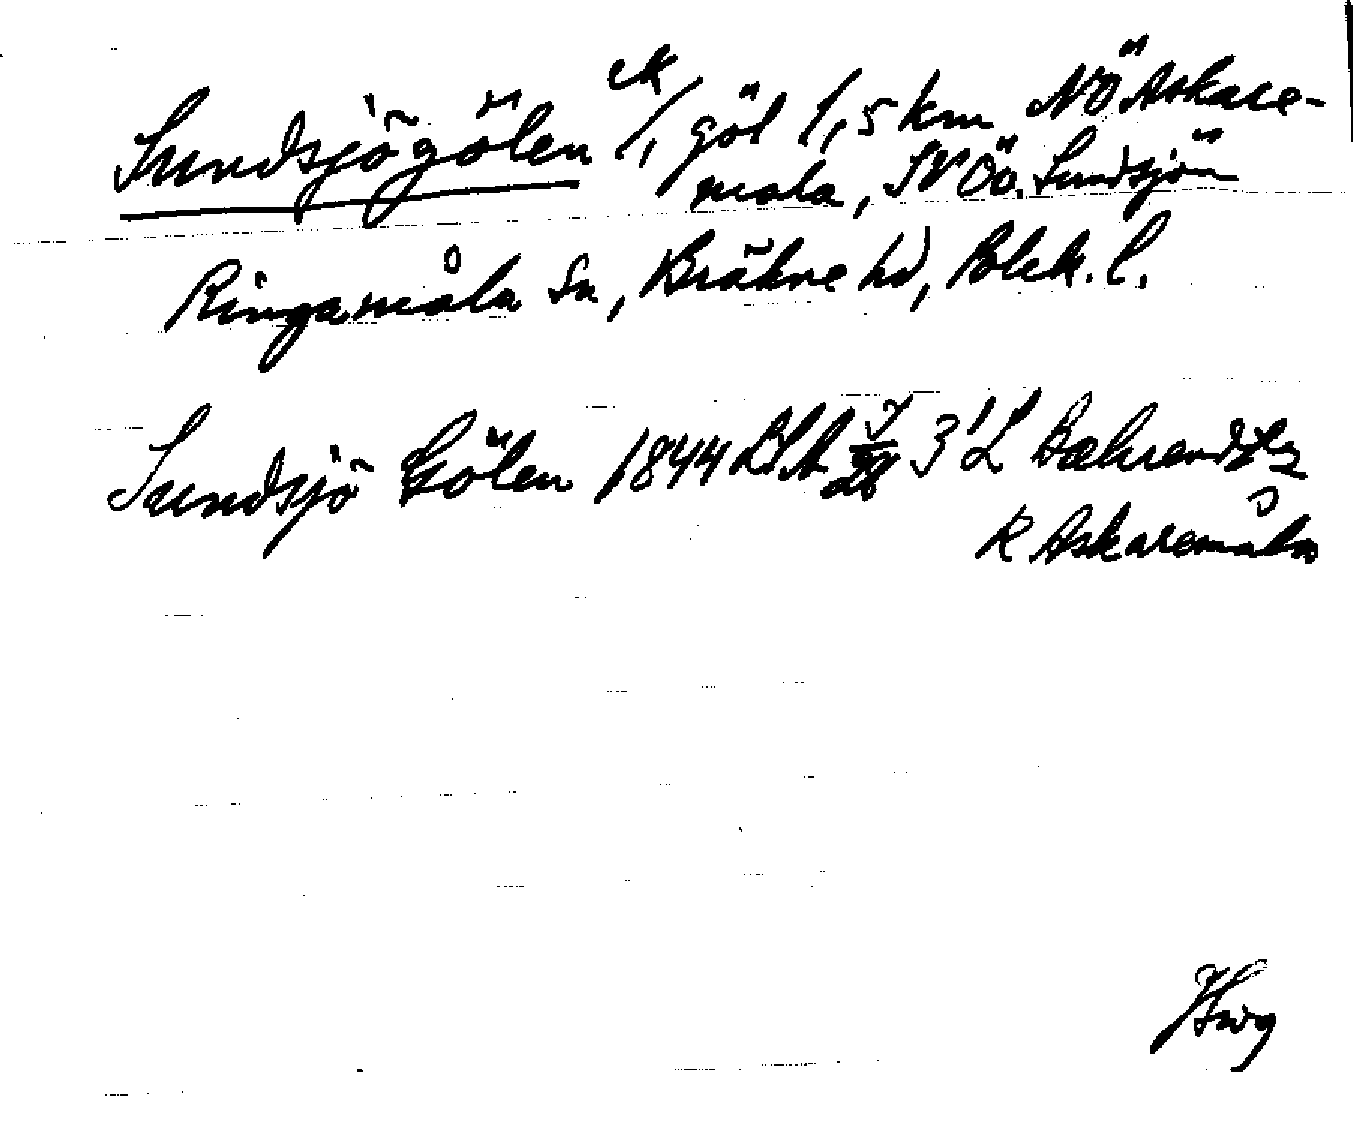 Sundsjögölen ek/, göl 1,5 km NÖ Askare-
måla, SV Öö. Sundsjön
Ringamåla sn, Bräkne hd, Blek. l.
Sundsjö Gölen 1844 LSA 3 L
R Askaremåla